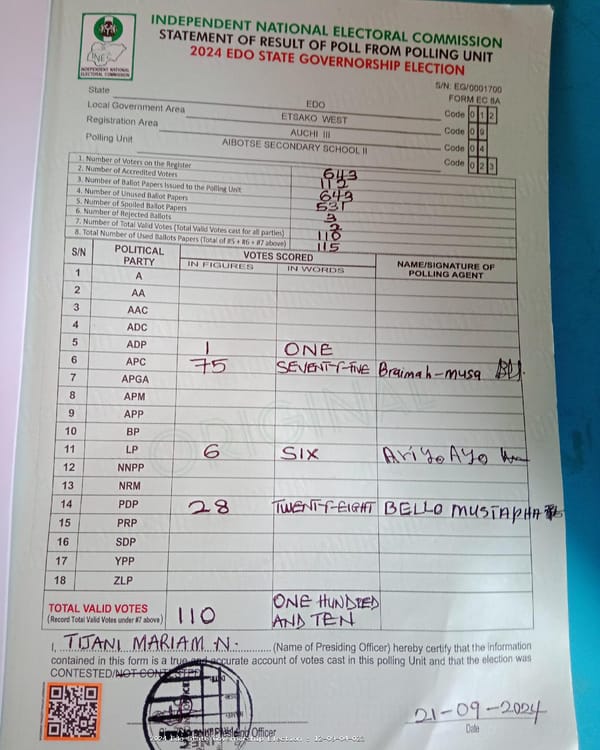 INDEPENDENT NATIONAL ELECTORAL COMMISSION
STATEMENT OF RESULT OF POLL FROM POLLING UNIT
2024 EDO STATE GOVERNORSHIP ELECTION
INEC
INDEPENDENT NATIONAL
ELECTORAL COMMISSION
S/N: EG/0001700
FORM EC 8A
State EDO Code 0 1 2
Local Government Area ETSAKO WEST Code 0 9
Registration Area AUCHI III Code 0 4
Polling Unit AIBOTSE SECONDARY SCHOOL II Code 0 2 3
1. Number of Voters on the Register 643
2. Number of Accredited Voters 112
3. Number of Ballot Papers Issued to the Polling Unit 643
4. Number of Unused Ballot Papers 531
5. Number of Spoiled Ballot Papers 3
6. Number of Rejected Ballots 2
7. Number of Total Valid Votes (Total Valid Votes cast for all parties) 110
8. Total Number of Used Ballots Papers (Total of #5 + #6 + #7 above) 115
S/N POLITICAL PARTY VOTES SCORED NAME/SIGNATURE OF POLLING AGENT
IN FIGURES IN WORDS
1 A
2 AA
3 AAC
4 ADC
5 ADP 1 ONE
6 APC 75 SEVENTY-FIVE Braimah-musa
7 APGA
8 APM
9 APP
10 BP
11 LP 6 SIX Ariyo Ayo
12 NNPP
13 NRM
14 PDP 28 TWENTY-EIGHT BELLO MUSTAPHA
15 PRP
16 SDP
17 YPP
18 ZLP
ORIGINAL
TOTAL VALID VOTES 110 ONE HUNDRED AND TEN
(Record Total Valid Votes under #7 above)
I, TIJANI MARIAM N. (Name of Presiding Officer) hereby certify that the information
contained in this form is a true and accurate account of votes cast in this polling Unit and that the election was
CONTESTED/NOT CONTESTED
Presiding Officer
21-09-2024
Date
2024 Edo State Governorship Election - 12-09-04-023